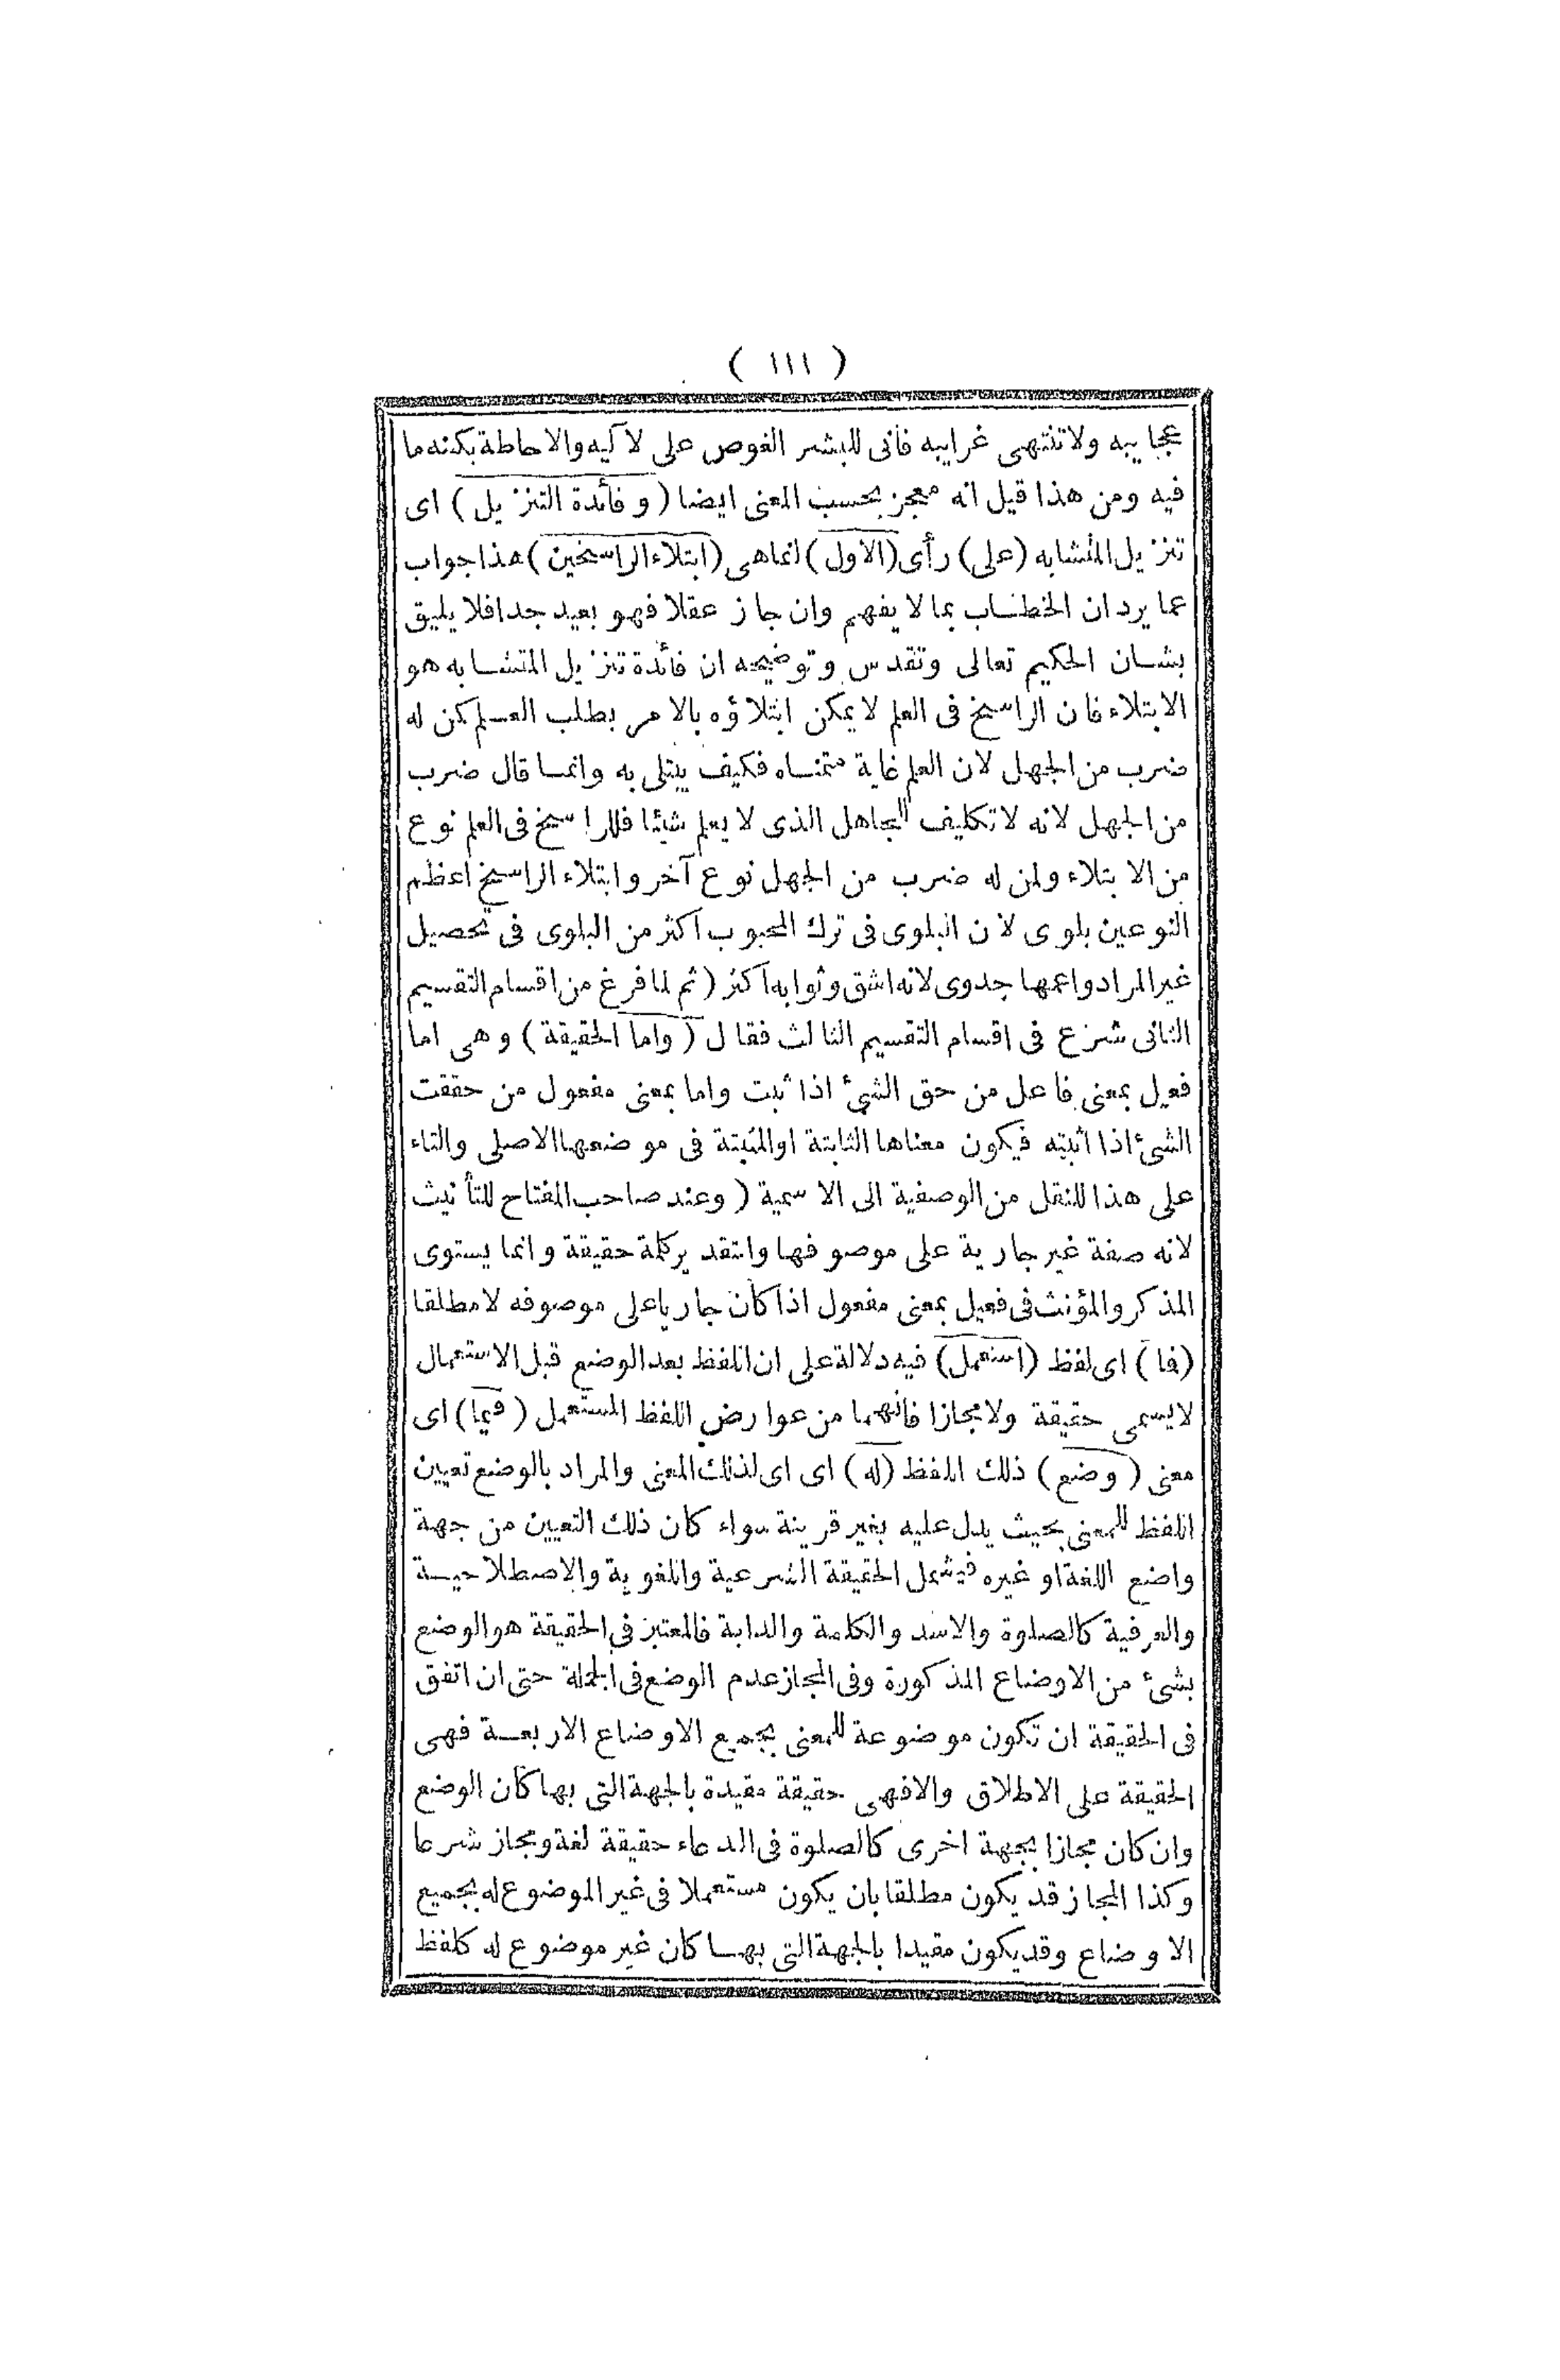 ( ١١١ )
عجايبه ولا تنتهى غرايبه فأنى للبشر الغوص على لآليه والاحاطة بكنه ما
فيه ومن هذا قيل انه معجز بحسب المعنى ايضا ( وفائدة التنزيل ) اى
تنزيل المتشابه (على) رأى (الاول) انما هى (ابتلاء الراسخين) هذا جواب
عما يرد ان الخطاب بما لا يفهم وان جاز عقلا فهو بعيد جدا فلا يليق
بشان الحكيم تعالى وتقدس وتوضيحه ان فائدة تنزيل المتشابه هو
الابتلاء فان الراسخ فى العلم لا يمكن ابتلاؤه بالامر بطلب العلم كمن له
ضرب من الجهل لان العلم غاية متمناه فكيف يبتلى به وانما قال ضرب
من الجهل لانه لا تكليف للجاهل الذى لا يعلم شيئا فللراسخ فى العلم نوع
من الابتلاء ولمن له ضرب من الجهل نوع آخر وابتلاء الراسخ اعظم
النوعين بلوى لان البلوى فى ترك المحبوب اكثر من البلوى فى تحصيل
غير المراد واعمها جدوى لانه اشق وثوابه اكثر ( ثم لما فرغ من اقسام التقسيم
الثانى شرع فى اقسام التقسيم الثالث فقال ( واما الحقيقة ) وهى اما
فعيل بمعنى فاعل من حق الشئ اذا ثبت واما بمعنى مفعول من حققت
الشئ اذا اثبته فيكون معناها الثابتة او المثبتة فى موضعها الاصلى والتاء
على هذا للنقل من الوصفية الى الاسمية ( وعند صاحب المفتاح للتأنيث
لانه صفة غير جارية على موصوفها والتقدير كلمة حقيقة وانما يستوى
المذكر والمؤنث فى فعيل بمعنى مفعول اذا كان جاريا على موصوفه لا مطلقا
(فا) اى لفظ (استعمل) فيه دلالة على ان اللفظ بعد الوضع قبل الاستعمال
لا يسمى حقيقة ولا مجازا فانهما من عوارض اللفظ المستعمل ( فيما) اى
معنى ( وضع ) ذلك اللفظ (له ) اى اى لذلك المعنى والمراد بالوضع تعيين
اللفظ للمعنى بحيث يدل عليه بغير قرينة سواء كان ذلك التعيين من جهة
واضع اللغة او غيره فيشمل الحقيقة الشرعية واللغوية والاصطلاحية
والعرفية كالصلوة والاسد والكلمة والدابة فالمعتبر فى الحقيقة هو الوضع
بشئ من الاوضاع المذكورة وفى المجاز عدم الوضع فى الجملة حتى ان اتفق
فى الحقيقة ان تكون موضوعة للمعنى بجميع الاوضاع الاربعة فهى
الحقيقة على الاطلاق والا فهى حقيقة مقيدة بالجهة التى بها كان الوضع
وان كان مجازا بجهة اخرى كالصلوة فى الدعاء حقيقة لغة ومجاز شرعا
وكذا المجاز قد يكون مطلقا بان يكون مستعملا فى غير الموضوع له بجميع
الاوضاع وقد يكون مقيدا بالجهة التى بها كان غير موضوع له كلفظ